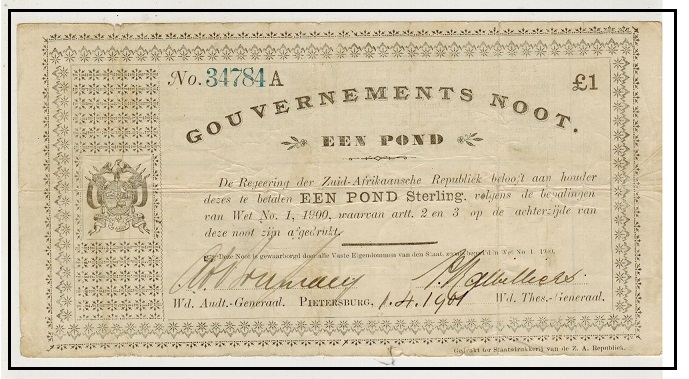 No. 34784 A £1
GOUVERNEMENTS NOOT.
EEN POND
De Regeering der Zuid-Afrikaansche Republiek belooft aan houder
dezes te betalen EEN POND Sterling. volgens de bepalingen
van Wet No. 1, 1900, waarvan artt. 2 en 3 op de achterzijde van
deze noot zijn afgedrukt.
Deze Noot is gewaarborgd door alle Vaste Eigendommen van den Staat, in Wet No. 1. 1900.
Wd. Audt.-Generaal. PIETERSBURG, 1.4.1901 Wd. Thes.-Generaal.
Gedrukt ter Staatsdrukkerij van de Z. A. Republiek.